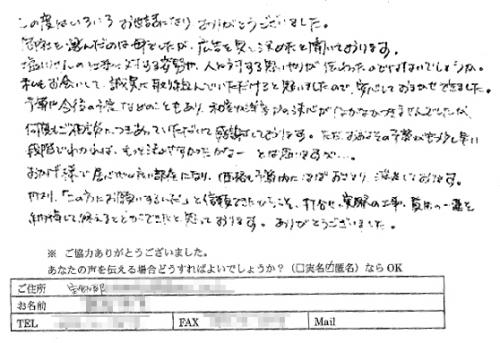 この度はいろいろお世話になりありがとうございました。
御社を選んだのは母でしたが、広告を見て決めたと聞いております。
仕事に対する姿勢や、人に対する思いやりが伝わったのではないでしょうか。
私もお会いして、誠実に取り組んでいただけると思いましたので、安心しておまかせできました。
予算や今後の予定などのこともあり、なかなか決心がつきませんでしたが、
何度もご相談につきあっていただいて感謝しております。ただ、おおよその予算がもう少し早い
段階でわかれば、もっと決めやすかったかなー とは思いますが…。
おかげ様で居心地のいい部屋になり、価格も予算内にほぼおさまり、満足しております。
何より、「この方にお願いするんだ」と信頼できたからこそ、打合せ、実際の工事、
納得して終えることができたと思っております。ありがとうございました。
※ ご協力ありがとうございました。
あなたの声を伝える場合どうすればよいでしょうか？（□実名☑匿名）なら OK
ご住所
お名前
TEL FAX Mail